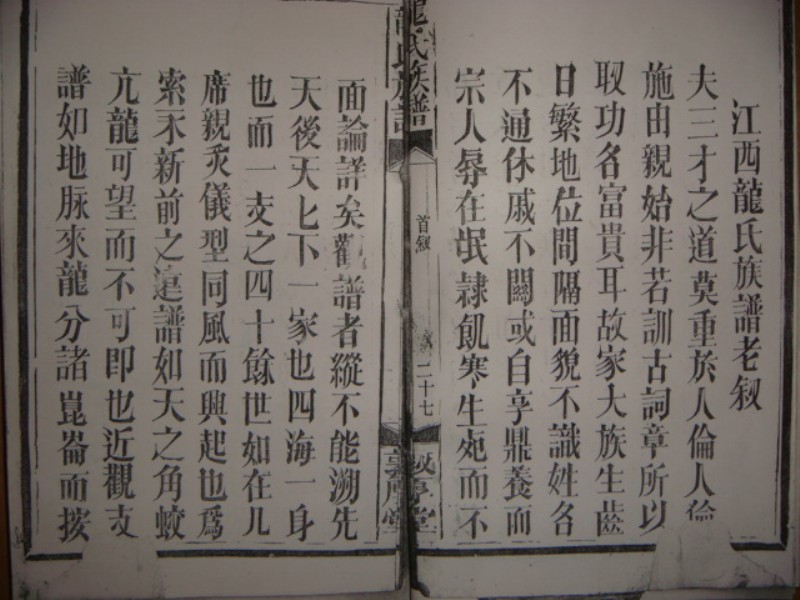 江西龍氏族譜老叙
夫三才之道莫重於人倫人倫
施由親始非若訓古詞章所以
取功名富貴耳故家大族生齒
日繁地位間隔面貌不識姓名
不通休戚不關或自享鼎養而
宗人辱在氓隸飢寒生死而不
龍氏族譜
首叙
二十七
敦厚堂
面論詳矣觀譜者縱不能溯先
天後天七下一家也四海一身
也而一支之四十餘世如在几
席親炙儀型同風而興起也為
索禾新前之遠譜如天之角蛟
亢龍可望而不可即也近觀支
譜如地脉來龍分諸崑崙而按